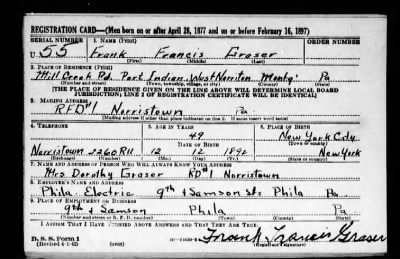 REGISTRATION CARD—(Men born on or after April 28, 1877 and on or before February 16, 1897)
SERIAL NUMBER 1. NAME (Print) ORDER NUMBER
U. 55 Frank Francis Graser
(First) (Middle) (Last)
2. PLACE OF RESIDENCE (Print)
Mill Creek Rd. Port Indian, West Norriton Montg' Pa
(Number and street) (Town, township, village, or city) (County) (State)
[THE PLACE OF RESIDENCE GIVEN ON THE LINE ABOVE WILL DETERMINE LOCAL BOARD
JURISDICTION; LINE 2 OF REGISTRATION CERTIFICATE WILL BE IDENTICAL]
3. MAILING ADDRESS
R.F.D #1 Norristown Pa
[Mailing address if other than place indicated on line 2. If same insert word same]
4. TELEPHONE 5. AGE IN YEARS 6. PLACE OF BIRTH
49 New York City
DATE OF BIRTH (Town or county)
Norristown 2260R11 12 12 1892 New York
(Exchange) (Number) (Mo.) (Day) (Yr.) (State or country)
7. NAME AND ADDRESS OF PERSON WHO WILL ALWAYS KNOW YOUR ADDRESS
Mrs Dorothy Graser RD#1 Norristown
8. EMPLOYER'S NAME AND ADDRESS
Phila. Electric 9th & Samson Sts Phila Pa
9. PLACE OF EMPLOYMENT OR BUSINESS
9th & Samson Phila Pa
(Number and street or R. F. D. number) (Town) (County) (State)
I AFFIRM THAT I HAVE VERIFIED ABOVE ANSWERS AND THAT THEY ARE TRUE.
D. S. S. Form 1 Frank Francis Graser
(Revised 4-1-42) (over) (Registrant's signature)